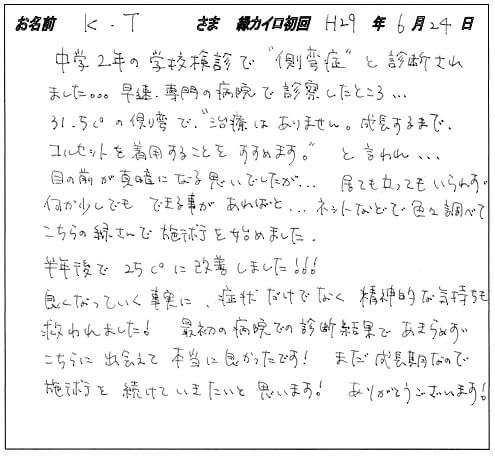 お名前 K.T さま 縁カイロ初回 H29 年 6 月 24 日
中学2年の学校検診で"側弯症"と診断され
ました。。。早速、専門の病院で診察したところ...
31.5c°の側弯で、"治療はありません。成長するまで、
コルセットを着用することをすすめます。"と言われ...
目の前が真暗になる思いでしたが... 居ても立ってもいられず
何か少しでもできる事があればと...ネットなどで色々調べて
こちらの縁さんで施術を始めました.
半年後で25c°に改善しました!!!
良くなっていく事実に、症状だけでなく精神的な気持ちも
救われました! 最初の病院での診断結果であきらめず
こちらに出会えて本当に良かったです! まだ成長期なので
施術を続けていきたいと思います! ありがとうございます!